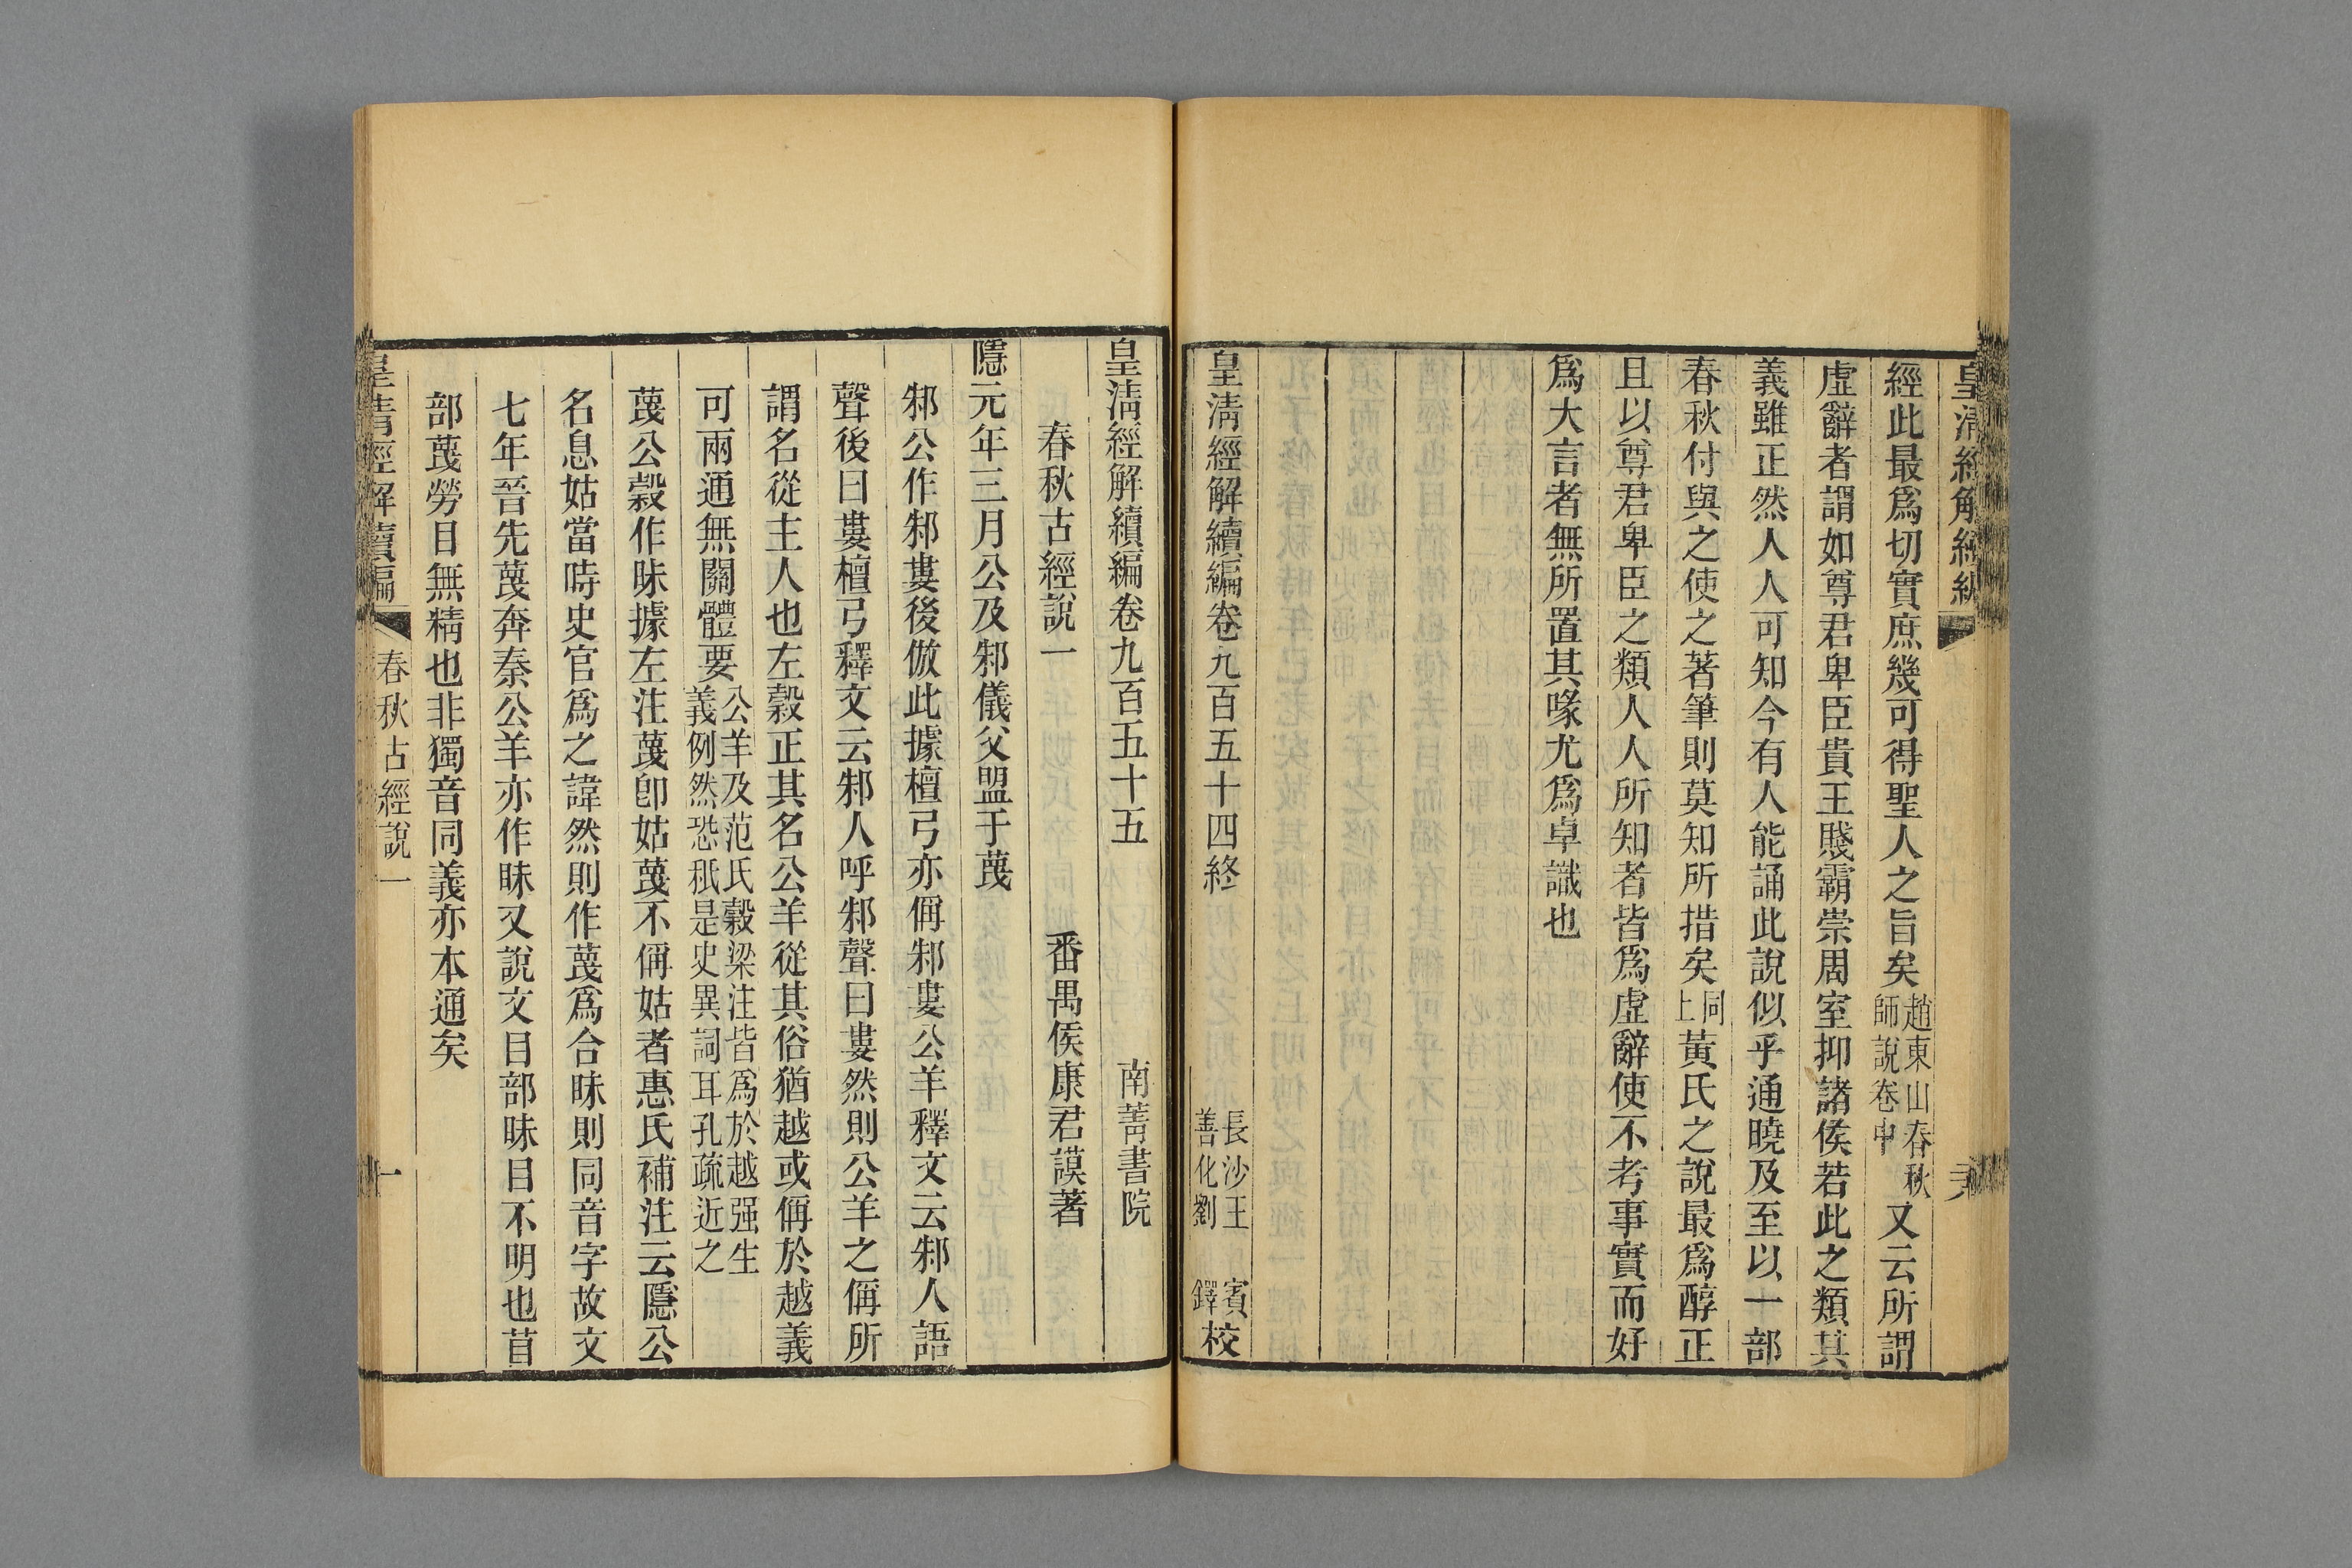 經此最爲切實庶幾可得聖人之旨矣趙東山春秋師說卷中又云所謂
虛辭者謂如尊君卑臣貴王賤霸崇周室抑諸侯若此之類其
義雖正然人人可知今有人能誦此說似乎通曉及至以一部
春秋付與之使之著筆則莫知所措矣同上黃氏之說最爲醇正
且以尊君卑臣之類人人所知者皆爲虛辭使不考事實而好
爲大言者無所置其喙尤爲卓識也
皇清經解續編卷九百五十四終
長沙王 賓
善化劉 鐸
校
皇清經解續編卷九百五十五
南菁書院
春秋古經說一
番禺侯康君謨著
隱元年三月公及邾儀父盟于蔑
邾公作邾婁後倣此據檀弓亦偁邾婁公羊釋文云邾人語
聲後曰婁檀弓釋文云邾人呼邾聲曰婁然則公羊之偁所
謂名從主人也左穀正其名公羊從其俗猶越或偁於越義
可兩通無關體要公羊及范氏穀梁注皆爲於越强生義例然恐秖是史異詞耳孔疏近之
蔑公穀作昧據左注蔑卽姑蔑不偁姑者惠氏補注云隱公
名息姑當時史官爲之諱然則作蔑爲合昧則同音字故文
七年晉先蔑奔秦公羊亦作昧又說文目部昧目不明也苜
部蔑勞目無精也非獨音同義亦本通矣
皇清經解續編
春秋古經說一
一